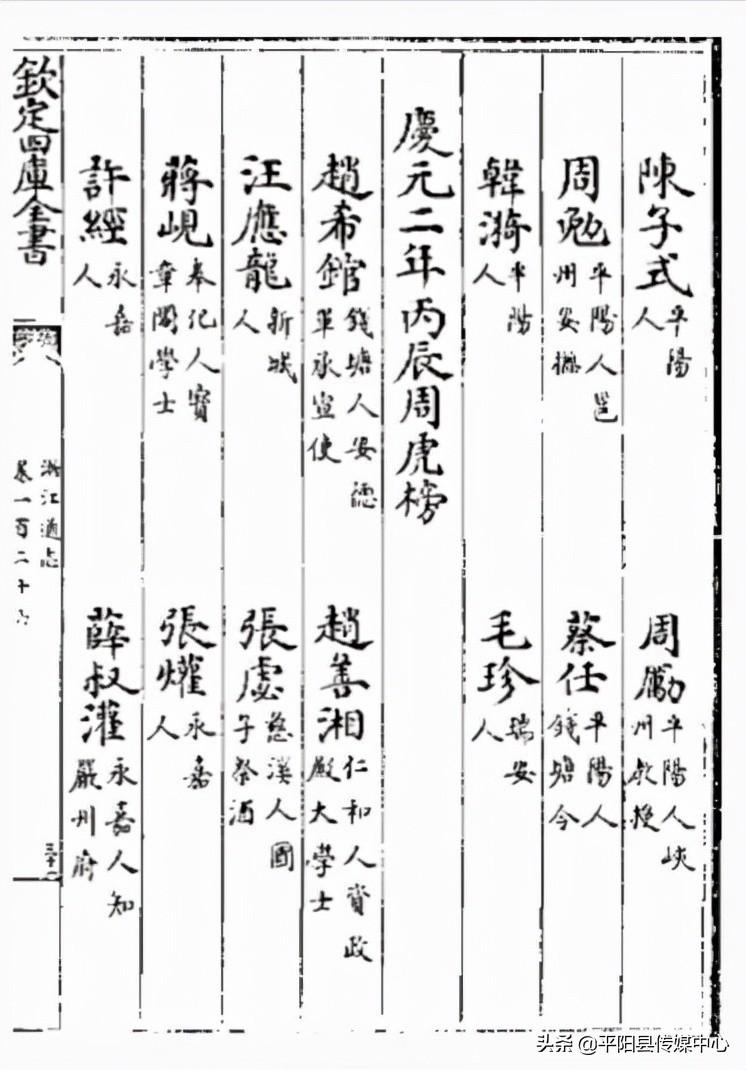 陳子式 平陽人 周勵 平陽人峽州教授
周勉 平陽人邕州安撫 蔡任 平陽人錢塘令
韓漪 平陽人 毛珍 瑞安人
慶元二年丙辰周虎榜
趙希錧 錢塘人安德軍承宣使 趙善湘 仁和人資政殿大學士
汪應龍 新城人 張虙 慈溪人國子祭酒
蔣峴 奉化人寶章閣學士 張爟 永嘉人
許經 永嘉人 薛叔灌 永嘉人知嚴州府
欽定四庫全書
浙江通志
卷一百二十六
头条 @平阳县传媒中心